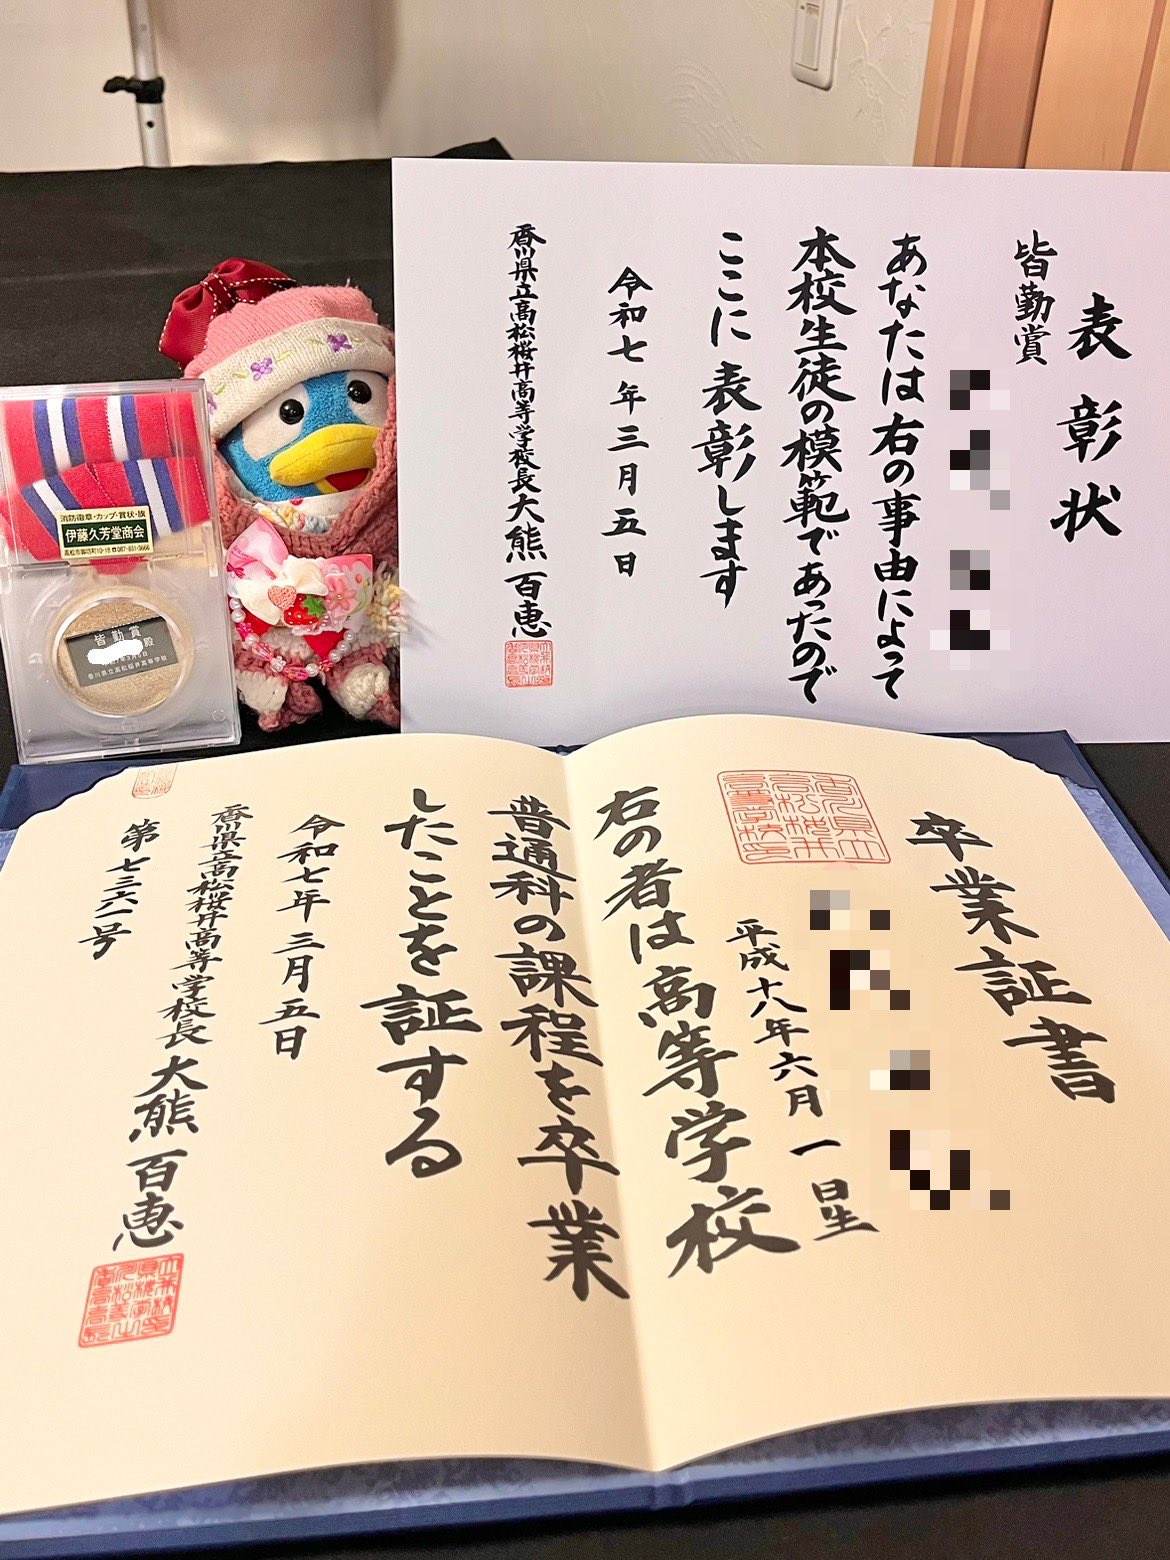 表彰状
皆勤賞
あなたは右の事由によって
本校生徒の模範であったので
ここに表彰します
令和七年三月五日
香川県立高松桜井高等学校長大熊百恵
消防徽章・カップ・賞状・旗
伊藤久芳堂商会
高松市御坊町10-18 ☎087-851-3666
皆勤賞
殿
香川県立高松桜井高等学校
卒業証書
平成十八年六月一日生
右の者は高等学校
普通科の課程を卒業
したことを証する
令和七年三月五日
香川県立高松桜井高等学校長大熊百恵
第七三六一号